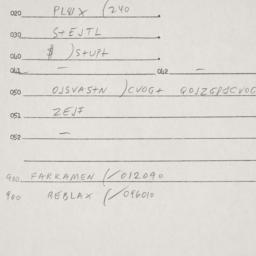 020 PLWX (240
030 S+EJTL
060 $ )S+UP+
061 — 062 —
050 OJSVAS+N )CVOG+
051 ZEJF
052 —
900 FARKAMEN (/012090
900 REBLAX (/096010